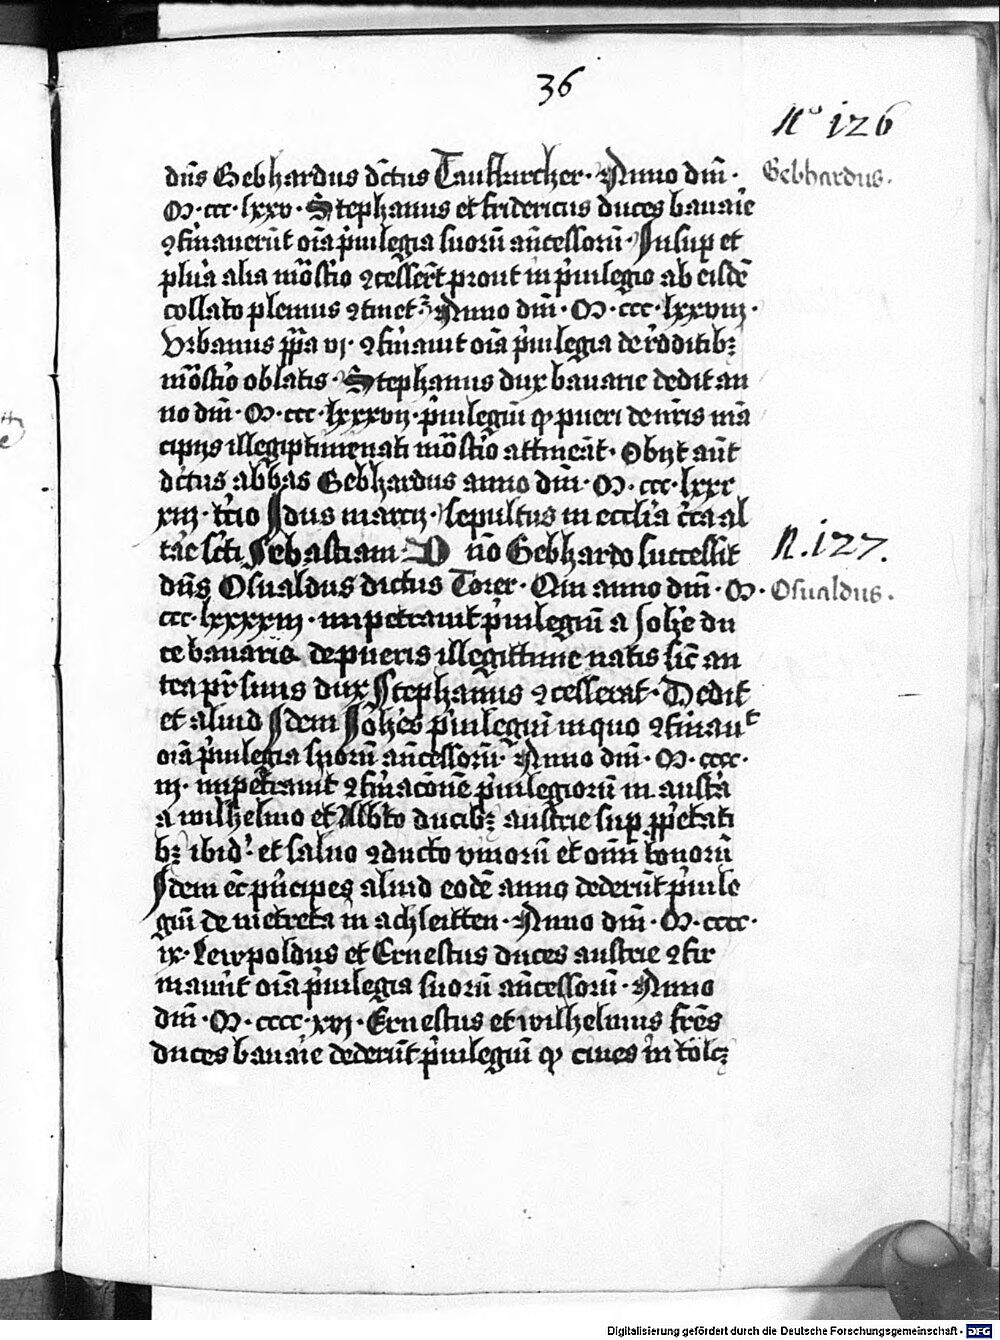 36
Nº 126
dn̄s Gebhardus dc̄tus Taufkircher · Anno dn̄i ·
Gebhardus.
M · ccc · lxxv · Stephanus et fridericus duces bauar̄ie
ꝯfirmauerūt oīa p̓uilegia suorū an̄cessorū · Insup et
plur̓a alia mōst̓io ꝯcesser̄t prout in p̓uilegio ab eisdē
collato plenius ꝯtinetꝛ Anno dn̄i · M · ccc · lxxviij ·
Vrbanus pp̄a vj · ꝯfirmauit oīa p̓uilegia de rꝺditibꝫ
mōst̓io oblatis · Stephanus dux bauarie dedit an
no dn̄i · M · ccc · lxxxvij · p̓uilegiū ꝙ pueri de nr̄is mā
cipijs illegiptime nati mōst̓io attineāt · Obijt aūt
dictus abbas Gebhardus anno dn̄i · M · ccc · lxxx
xiij · tc̓io Idus marcij · sepultus in ecclīa c̓ca al
tar̄e sc̄ti Sebastiani · D no Gebhardo successit
N. 127.
dn̄s Osualdus dictus Torer · Qui anno dn̄i · M ·
Osualdus.
ccc · lxxxxiij · impetrauit p̓uilegiū a Joh̄e du
ce bauarie de pueris illegittime natis sic̄ an
tea pr̄ suus dux Stephanus ꝯcesserat · Dedit
et aliud Idem Joh̄es p̓uilegiū in quo ꝯfirmauᵗ
oīa p̓uilegia suorū an̄cessorū · Anno dn̄i · M · cccc ·
iij · impetrauit ꝯfirmac̄onē p̓uilegiorū in aust̓a
a wilhelmo et Albt̄o ducibꝫ austrie sup pp̓etati
bꝫ ibid̓ et saluo ꝯducto vinorū et om̄i bonorū
Idem ec̄ p̓ncipes aliud eodē anno dederūt p̓uile
giū de metreta in achleitten · Anno dn̄i · M · cccc ·
ix · Lewpoldus et Ernestus duces austrie ꝯfir
mauūt oīa p̓uilegia suorū an̄cessorū · Anno
dn̄i · M · cccc · xvj · Ernestus et wilhelmus fr̄es
duces bauar̄ie dederūt p̓uilegiū ꝙ ciues in tolcꝫ
Digitalisierung gefördert durch die Deutsche Forschungsgemeinschaft - DFG